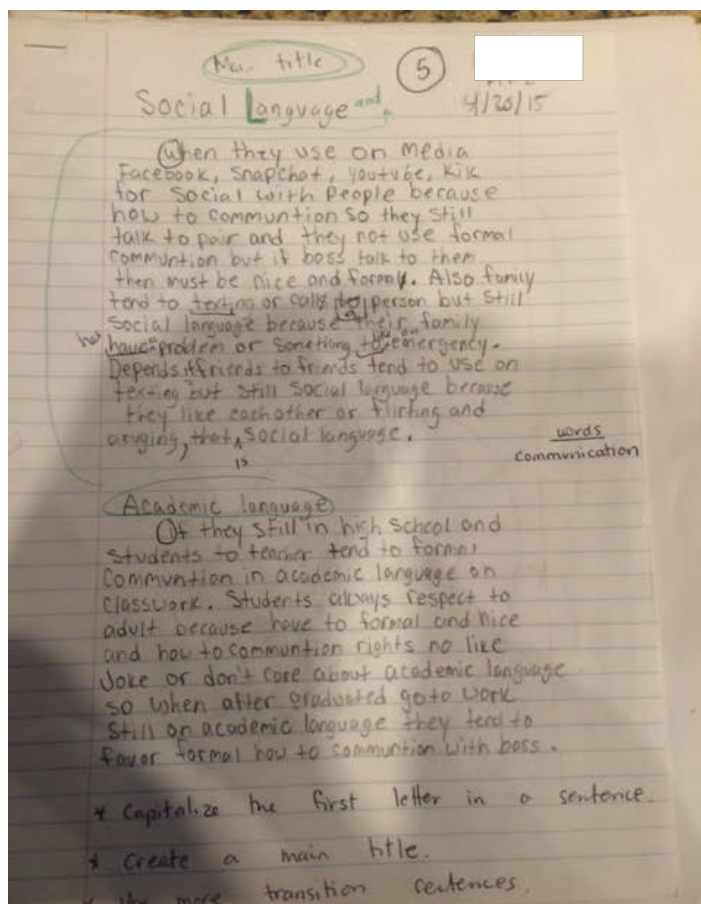 Main title
5
Social Language and
4/20/15
When they use on media
Facebook, Snapchat, youtube, Kik
for Social with People because
how to communtion so they still
talk to pair and they not use formal
communtion but if boss talk to them
then must be nice and formal. Also family
tend to texting or calls person but still
Social language because their family
has
have problem or something emergency.
Depends if friends to friends tend to use on
texting but still social language because
they like eachother or flirting and
aruging, that social language.
is
words
communication
Academic language
If they still in high school and
students to teacher tend to formal
communtion in academic language on
classwork. Students always respect to
adult because have to formal and nice
and how to communtion rights no like
Joke or don't care about academic language
so when after graduated go to work
still on academic language they tend to
favor formal how to communtion with boss.
* Capitalize the first letter in a sentence.
* Create a main title.
* Use more transition centences.